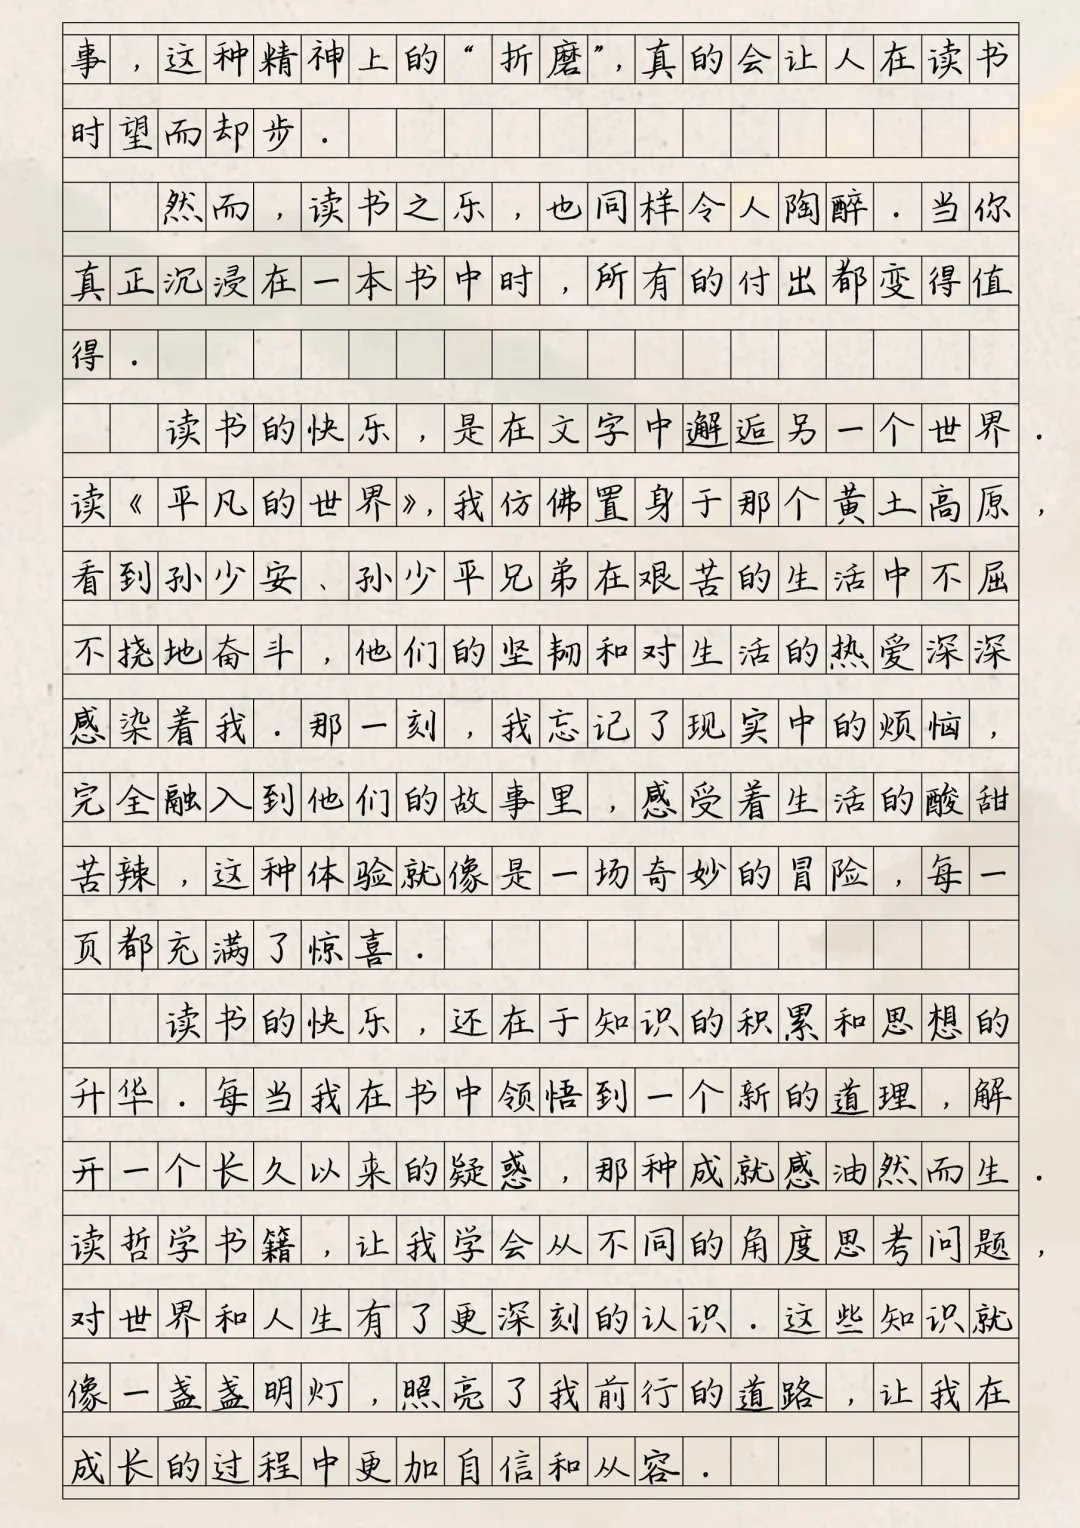 事，这种精神上的“折磨”，真的会让人在读书
时望而却步．
然而，读书之乐，也同样令人陶醉．当你
真正沉浸在一本书中时，所有的付出都变得值
得．
读书的快乐，是在文字中邂逅另一个世界．
读《平凡的世界》，我仿佛置身于那个黄土高原，
看到孙少安、孙少平兄弟在艰苦的生活中不屈
不挠地奋斗，他们的坚韧和对生活的热爱深深
感染着我．那一刻，我忘记了现实中的烦恼，
完全融入到他们的故事里，感受着生活的酸甜
苦辣，这种体验就像是一场奇妙的冒险，每一
页都充满了惊喜．
读书的快乐，还在于知识的积累和思想的
升华．每当我在书中领悟到一个新的道理，解
开一个长久以来的疑惑，那种成就感油然而生．
读哲学书籍，让我学会从不同的角度思考问题，
对世界和人生有了更深刻的认识．这些知识就
像一盏盏明灯，照亮了我前行的道路，让我在
成长的过程中更加自信和从容．